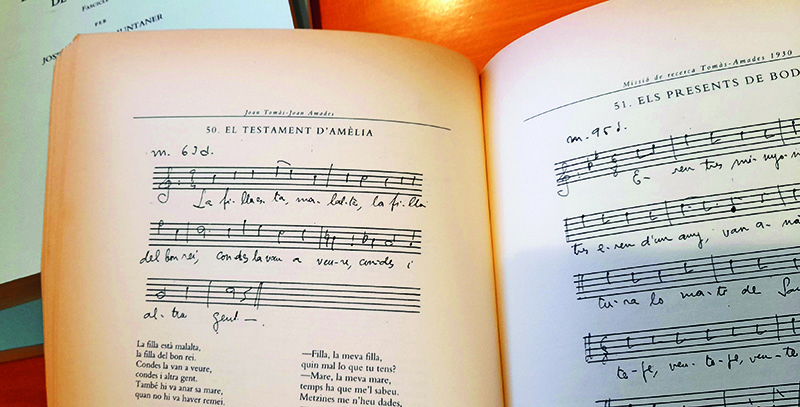 DE
FASCICLE
PER
UNTANER
Joan Tomàs-Joan Amades
50. EL TESTAMENT D'AMÈLIA
m. 63
La fi-lla es-ta, ma-lal-ta, la fi-lla
del bon rei, con-des la van a veu-re, con-des i
al-tra gent
La filla està malalta,
la filla del bon rei.
Condes la van a veure,
condes i altra gent.
També hi va anar sa mare,
quan no hi va haver remei.
—Filla, la meva filla,
quin mal lo que tu tens?
—Mare, la meva mare,
temps ha que me'l sabeu.
Metzines me n'heu dades,
Missió de recerca Tomàs-Amades 1930
51. ELS PRESENTS DE BOD
m. 95
E- ren tres mi-nyo-n
tres e-ren d'un any, van a-na
tu-ra lo ma-tí de San
te-fe, ven-te-fe, ven-te